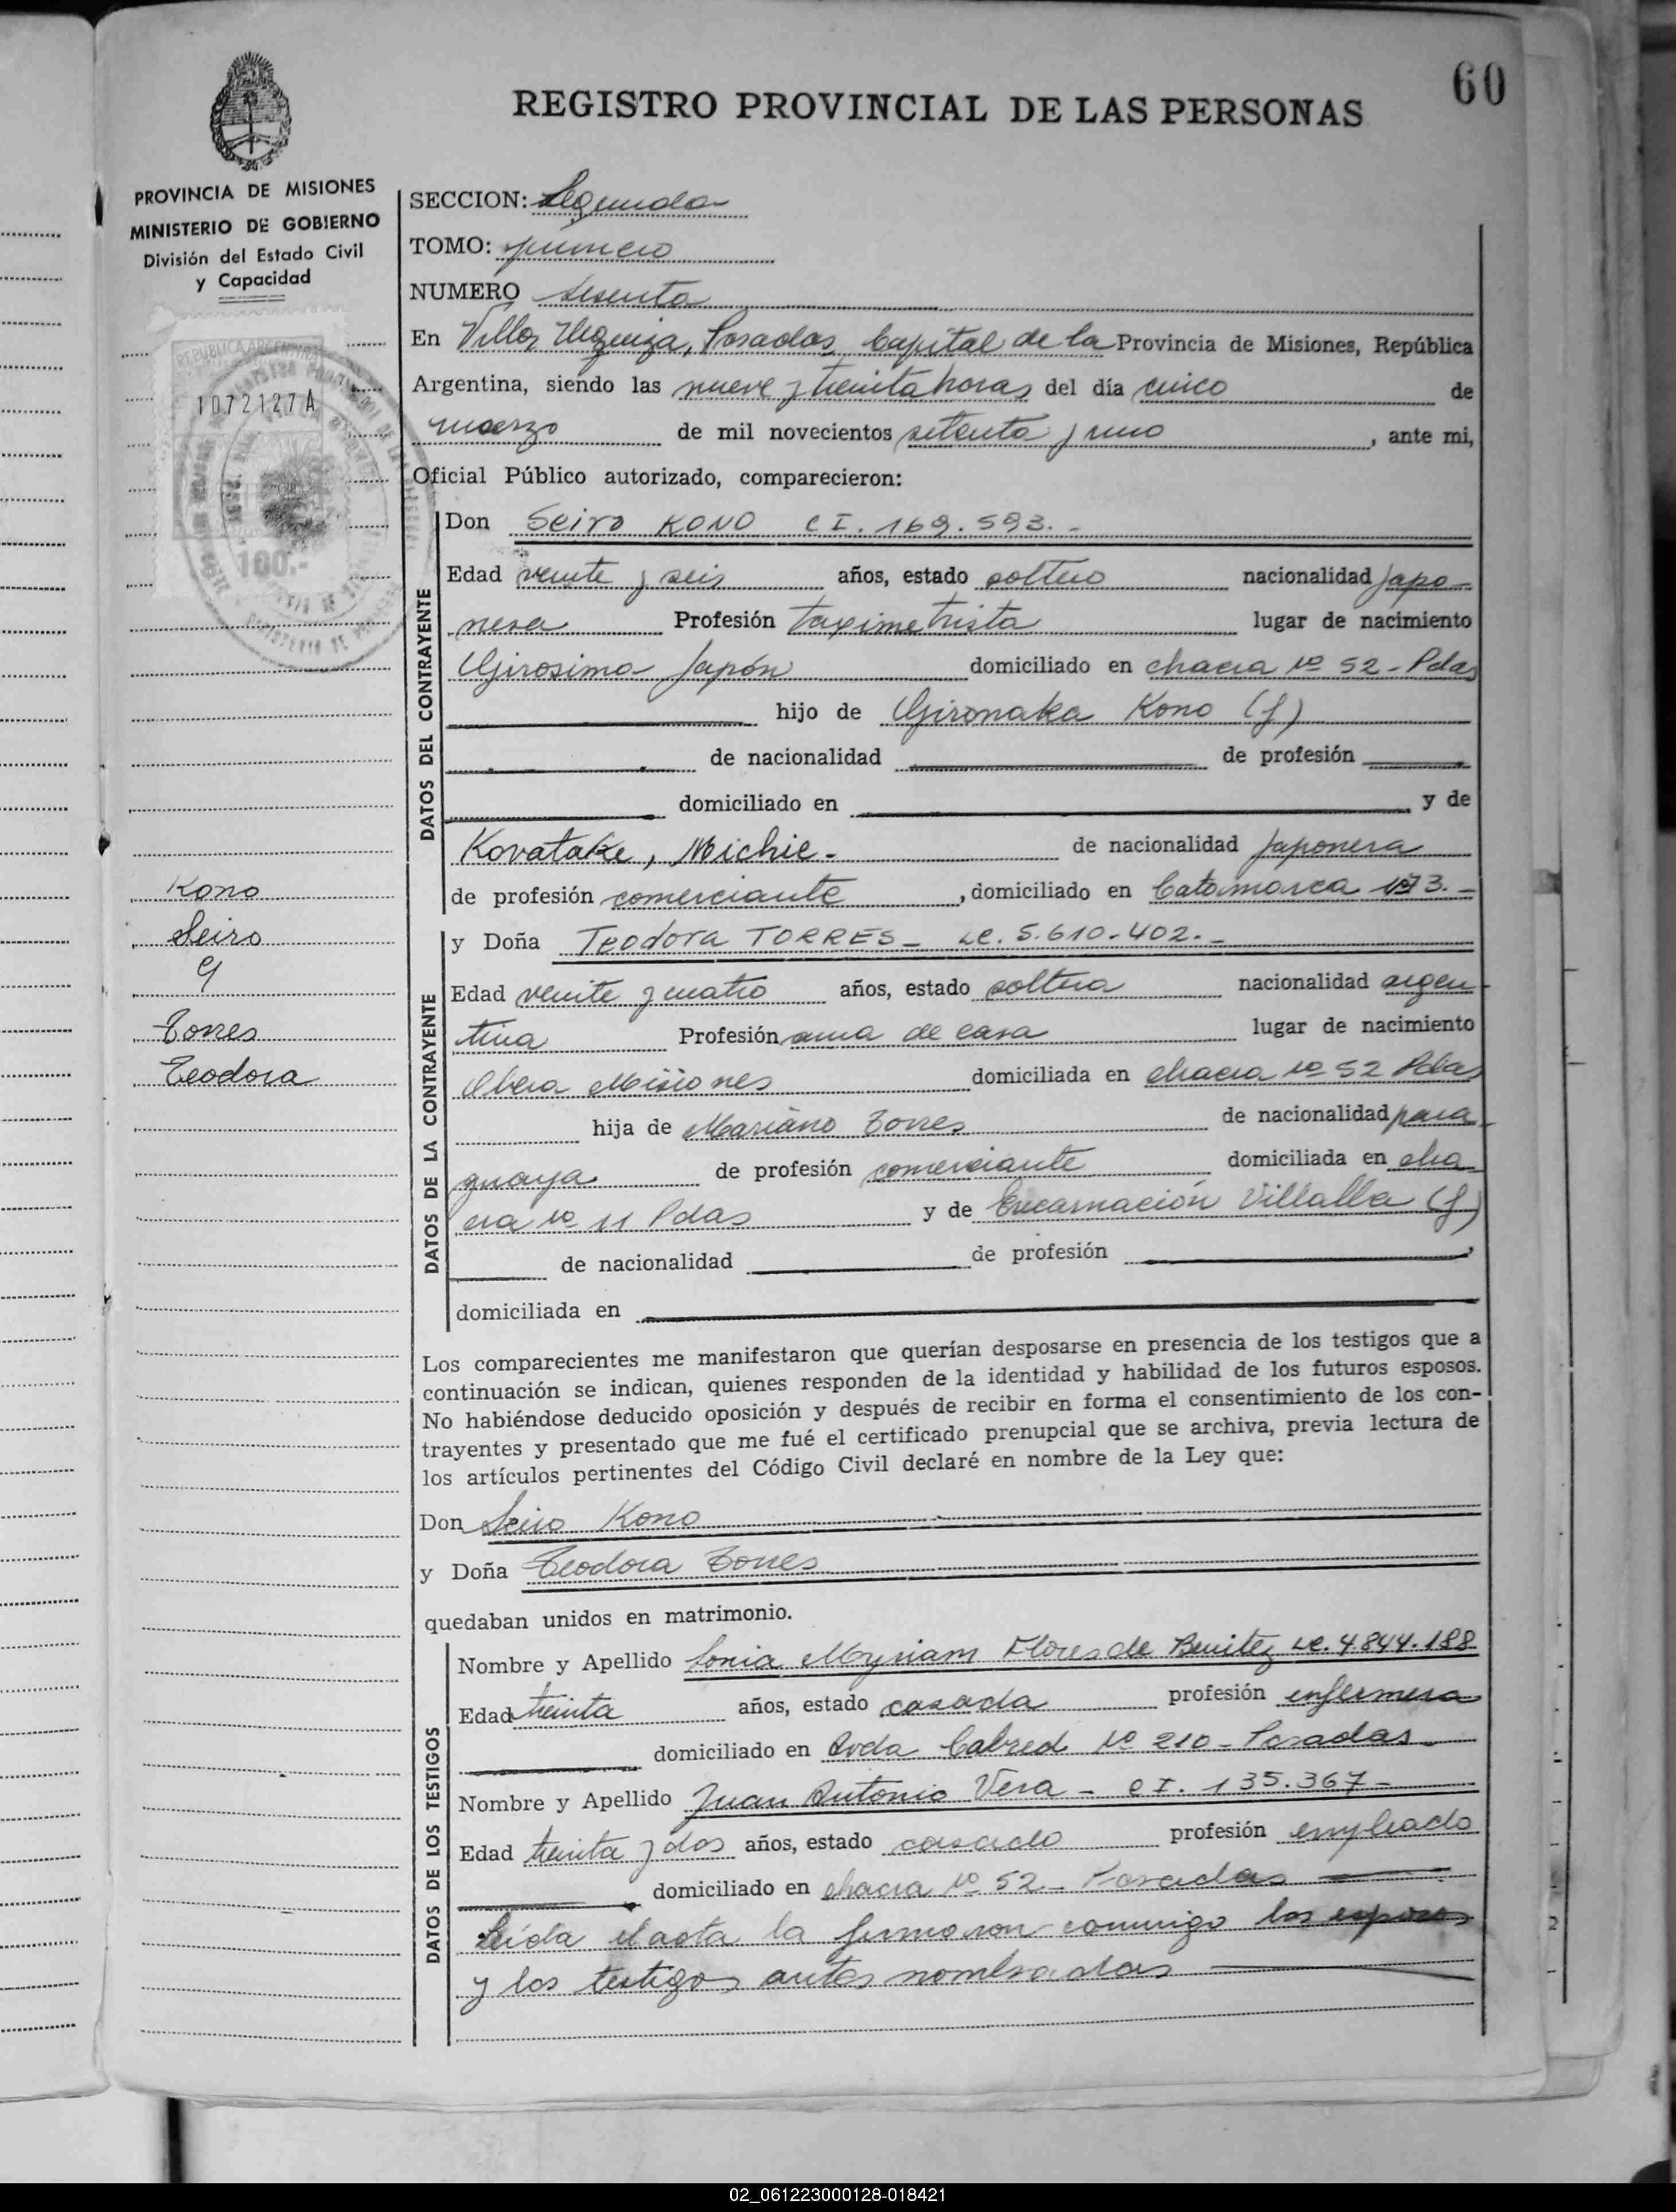 60
REGISTRO PROVINCIAL DE LAS PERSONAS
PROVINCIA DE MISIONES
MINISTERIO DE GOBIERNO
División del Estado Civil
y Capacidad
REPUBLICA ARGENTINA
1072127A
100.-
Kono
Seiro
y
Torres
Teodora
SECCION: Segunda
TOMO: primero
NUMERO sesenta
En Villa Urquiza, Posadas, Capital de la Provincia de Misiones, República
Argentina, siendo las nueve y treinta horas del día cinco de
marzo de mil novecientos setenta y uno, ante mi,
Oficial Público autorizado, comparecieron:
DATOS DEL CONTRAYENTE
Don Seiro KONO CI. 169.593.-
Edad veinte y seis años, estado soltero nacionalidad japo-
nesa Profesión taximetrista lugar de nacimiento
Girosima Japón domiciliado en chacra Nº 52 - Pdas
hijo de Gironaka Kono (f)
de nacionalidad de profesión
domiciliado en y de
Kovatake, Michie.- de nacionalidad Japonesa
de profesión comerciante, domiciliado en Catamarca 173.-
DATOS DE LA CONTRAYENTE
y Doña Teodora TORRES - LC. 5.610.402.-
Edad veinte y cuatro años, estado soltera nacionalidad argen-
tina Profesión ama de casa lugar de nacimiento
Obera Misiones domiciliada en chacra Nº 52 Pdas
hija de Mariano Torres de nacionalidad para-
guaya de profesión comerciante domiciliada en cha
cra Nº 11 Pdas y de Encarnación Villalba (f)
de nacionalidad de profesión
domiciliada en
Los comparecientes me manifestaron que querían desposarse en presencia de los testigos que a
continuación se indican, quienes responden de la identidad y habilidad de los futuros esposos.
No habiéndose deducido oposición y después de recibir en forma el consentimiento de los con-
trayentes y presentado que me fué el certificado prenupcial que se archiva, previa lectura de
los artículos pertinentes del Código Civil declaré en nombre de la Ley que:
Don Seiro Kono
y Doña Teodora Torres
quedaban unidos en matrimonio.
DATOS DE LOS TESTIGOS
Nombre y Apellido Sonia Myriam Flores de Benitez LC. 4.844.188
Edad treinta años, estado casada profesión enfermera
domiciliado en Avda Cabred Nº 210 - Posadas -
Nombre y Apellido Juan Antonio Vera - CI. 135.367 -
Edad treinta y dos años, estado casado profesión empleado
domiciliado en chacra Nº 52 - Posadas
Leida el acta la firmaron conmigo los esposos
y los testigos antes nombrados
02_061223000128-018421